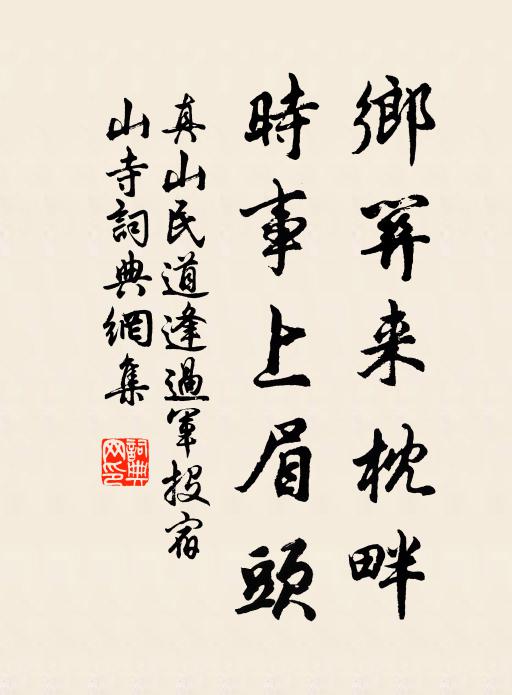 鄉關来枕畔
時事上眉頭
真山民道逢過軍投宿
山寺詞典網集
詞典网印